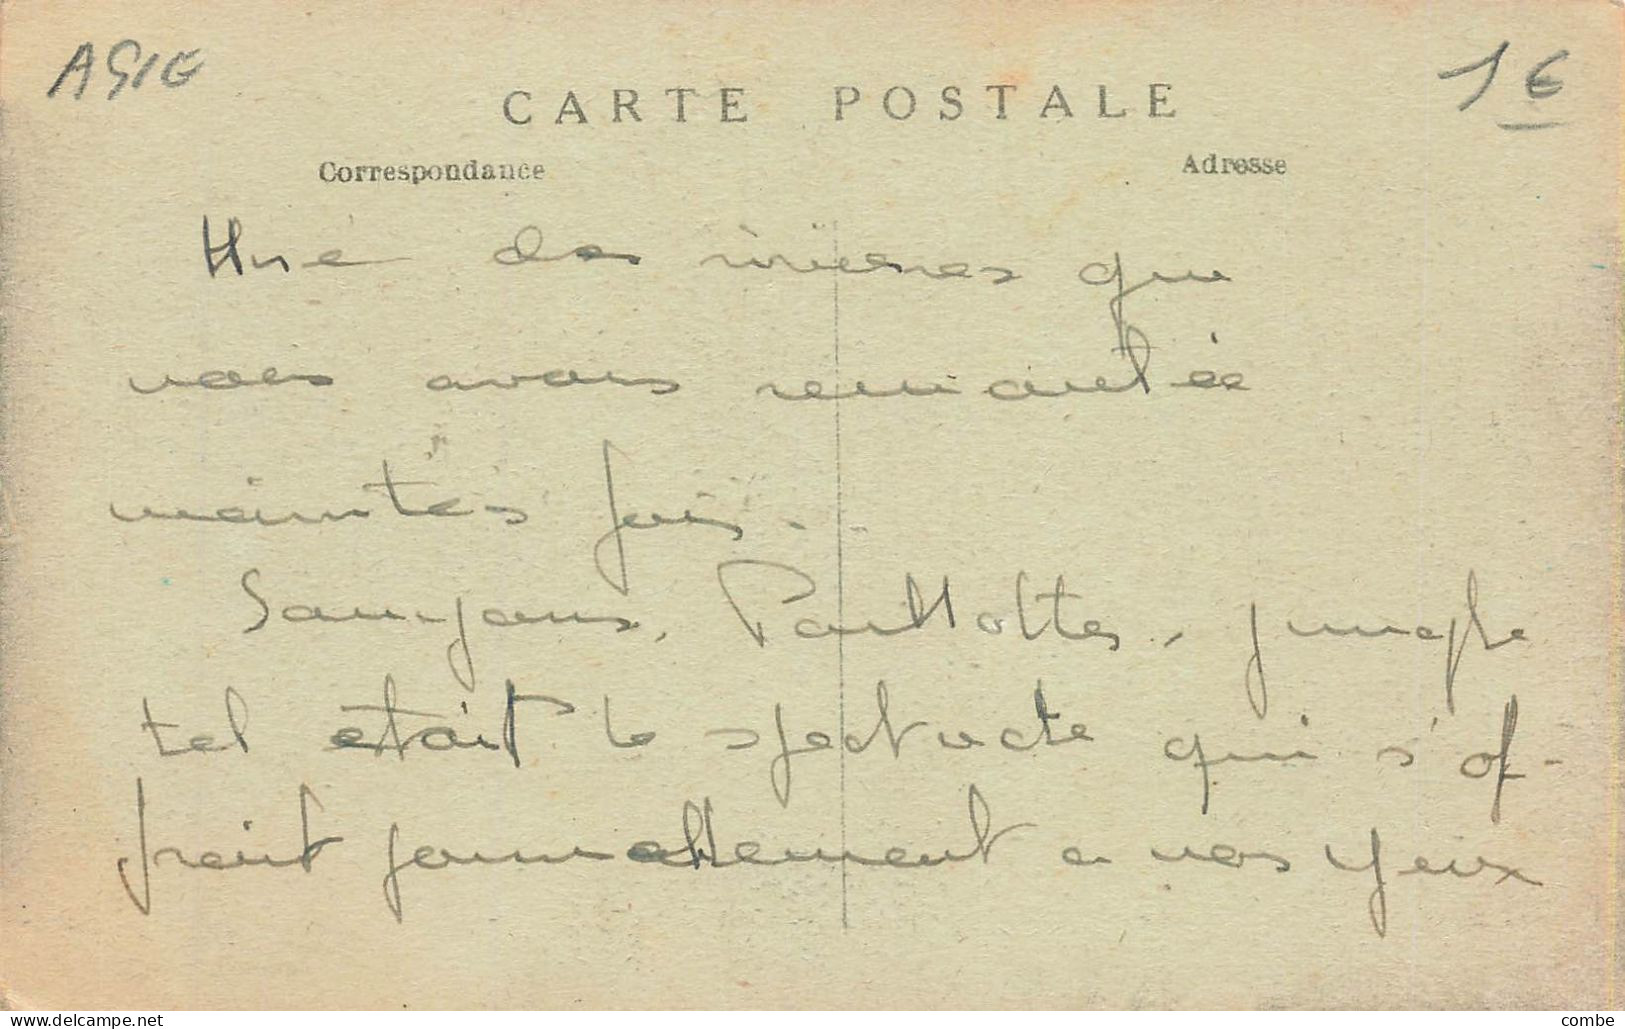 ASIE
1 €
CARTE POSTALE
Correspondance
Adresse
Une des rivières que
nous avons remontée
maintes fois..
Sampans, Paillottes, jungle
tel était le spectacle qui s'of-
frait journellement a nos yeux
www.delcampe.net
combe